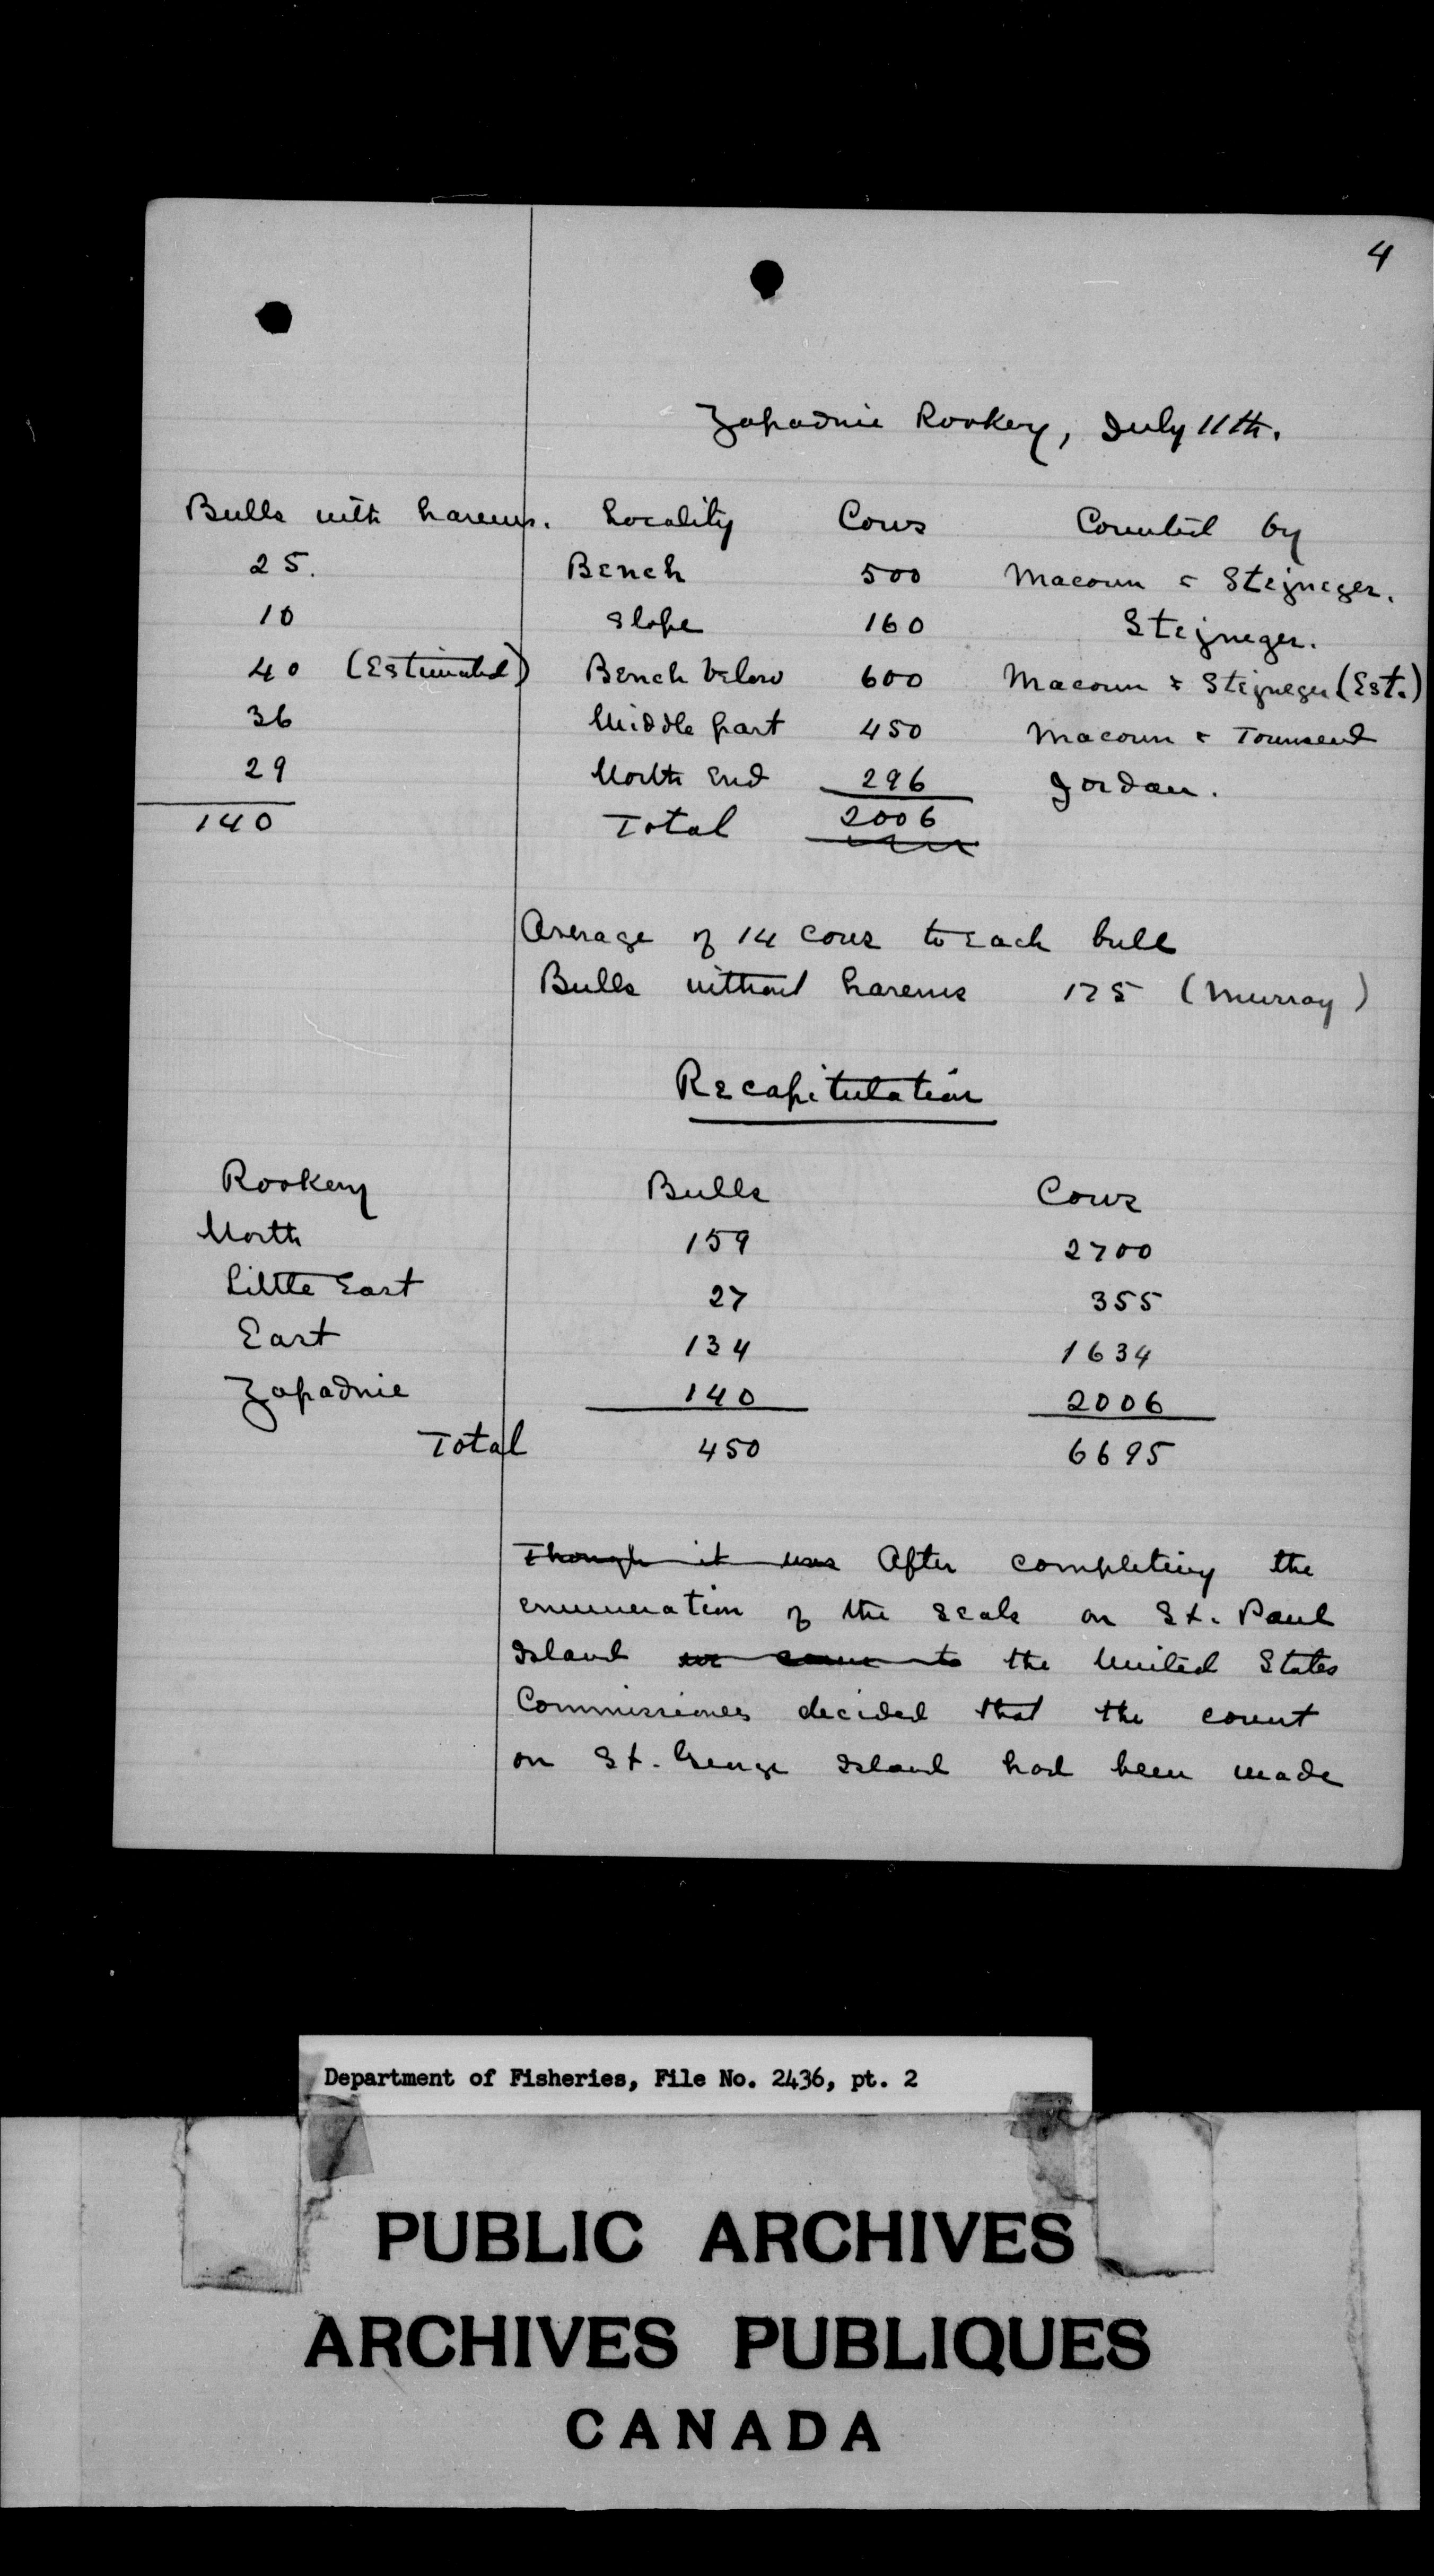 4
Zapadnie Rookery, July 11th.
Bulls with harems. Locality Cows Counted by
25. Bench 500 Macoun & Stejneger.
10 Slope 160 Stejneger.
40 (Estimated) Bench below 600 Macoun & Stejneger (Est.)
36 Middle part 450 Macoun & Townsend
29 North End 296 Jordan.
140 Total 2006
Average of 14 cows to each bull
Bulls without harems 175 (Murray)
Recapitulation
Rookery Bulls Cows
North 159 2700
Little East 27 355
East 134 1634
Zapadnie 140 2006
Total 450 6695
Though it was After completing the
enumeration of the seals on St. Paul
Island we came to the United States
Commissioners decided that the count
on St. George Island had been made
Department of Fisheries, File No. 2436, pt. 2
PUBLIC ARCHIVES
ARCHIVES PUBLIQUES
CANADA